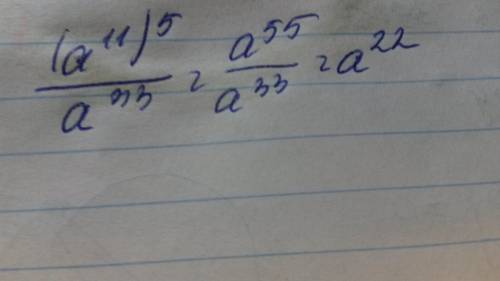 (a¹¹)⁵/a³³ = a⁵⁵/a³³ = a²²